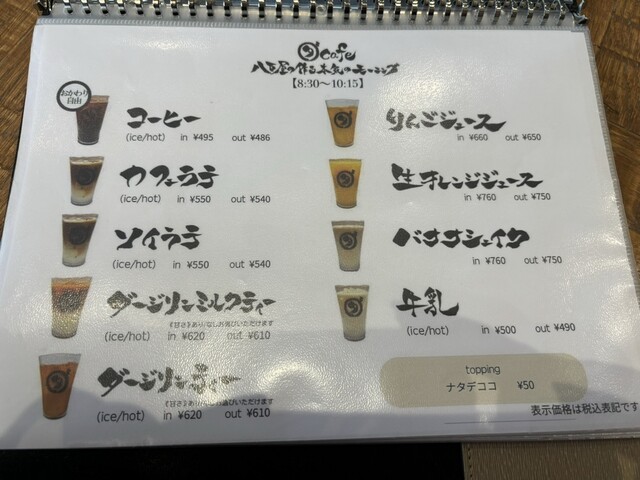 cafe
八百屋の作る本気のモーニング
【8:30〜10:15】
おかわり
自由
コーヒー
(ice/hot) in ¥495 out ¥486
カフェラテ
(ice/hot) in ¥550 out ¥540
ソイラテ
(ice/hot) in ¥550 out ¥540
ダージリンミルクティー
※甘さありなしお選びいただけます
(ice/hot) in ¥620 out ¥610
ダージリンティー
※甘さありなしお選びいただけます
(ice/hot) in ¥620 out ¥610
りんごジュース
in ¥660 out ¥650
生オレンジジュース
in ¥760 out ¥750
バナナシェイク
in ¥760 out ¥750
牛乳
(ice/hot) in ¥500 out ¥490
topping
ナタデココ ¥50
表示価格は税込表記です